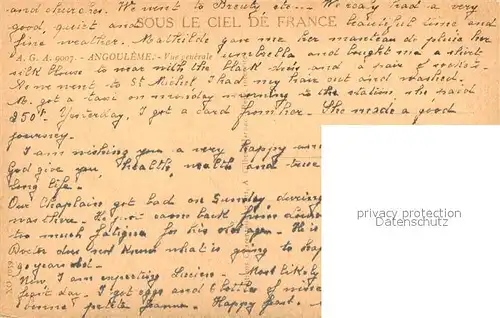 and churches. We went to Breuty etc... We really had a very
good, quiet and beautiful time and
SOUS LE CIEL DE FRANCE
fine weather. Mathilde gave me her manteau de pluie her
A. G. A. 9007. - ANGOULÊME. - Vue générale
umbrella and bought me a short
silk blouse to wear with the black dress and a pair of
As we went to St Michel, I had my hair cut and washed.
M. got a taxi on monday morning to the station, she paid
250f. Yesterday, I got a card from her. She made a good
journey.
I am wishing you a very happy
God give you health, wealth and true
long life.
Our Chaplain got bad on Sunday, during
was there. He came back from
to much fatigue for his old age. He is
Doctor does not know what is going to hap
90 years old.
Now, I am expecting Lucien. Most likely
feast day. I got eggs and 6 bottles of
bonne petite femme. Happy feast.
privacy protection
www.ansichtskartenversand.com